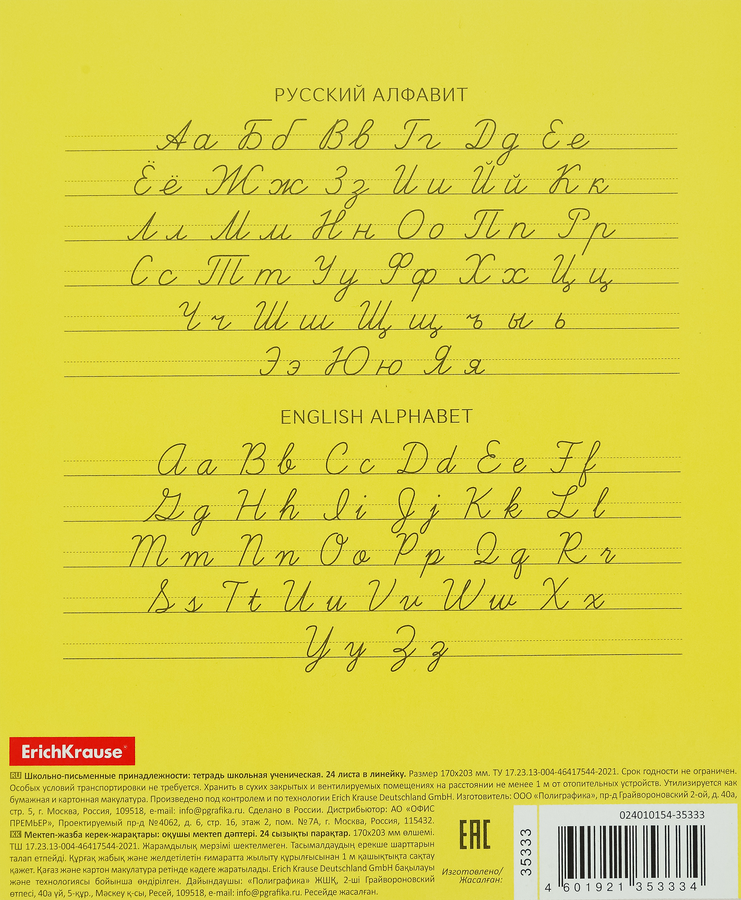 РУССКИЙ АЛФАВИТ
Аа Бб Вв Гг Дд Ее
Ёё Жж Зз Ии Йй Кк
Лл Мм Нн Оо Пп Рр
Сс Тт Уу Фф Хх Цц
Чч Шш Щщ ъ ы ь
Ээ Юю Яя
ENGLISH ALPHABET
Aa Bb Cc Dd Ee Ff
Gg Hh Ii Jj Kk Ll
Mm Nn Oo Pp Qq Rr
Ss Tt Uu Vv Ww Xx
Yy Zz
ErichKrause®
RU Школьно-письменные принадлежности: тетрадь школьная ученическая. 24 листа в линейку. Размер 170х203 мм. ТУ 17.23.13-004-46417544-2021. Срок годности не ограничен.
Особых условий транспортировки не требуется. Хранить в сухих закрытых и вентилируемых помещениях на расстоянии не менее 1 м от отопительных устройств. Утилизируется как
бумажная и картонная макулатура. Произведено под контролем и по технологии Erich Krause Deutschland GmbH. Изготовитель: ООО «Полиграфика», пр-д Грайвороновский 2-ой, д. 40а,
стр. 5, г. Москва, Россия, 109518, e-mail: info@pgrafika.ru. Сделано в России. Дистрибьютор: АО «ОФИС
ПРЕМЬЕР», Проектируемый пр-д №4062, д. 6, стр. 16, этаж 2, пом. №7А, г. Москва, Россия, 115432.
KK Мектеп-жазба керек-жарақтары: оқушы мектеп дәптері. 24 сызықты парақтар. 170х203 мм өлшемі.
ТШ 17.23.13-004-46417544-2021. Жарамдылық мерзімі шектелмеген. Тасымалдаудың ерекше шарттарын
талап етпейді. Құрғақ жабық және желдетілетін ғимаратта жылыту құрылғысынан 1 м қашықтықта сақтау
қажет. Қағаз және картон макулатура ретінде кәдеге жаратылады. Erich Krause Deutschland GmbH бақылауы
және технологиясы бойынша өндірілген. Дайындаушы: «Полиграфика» ЖШҚ, 2-ші Грайвороновский
өтпесі, 40а үй, 5-құр., Мәскеу қ-сы, Ресей, 109518, e-mail: info@pgrafika.ru. Ресейде жасалған.
EAC
Изготовлено/
Жасалған:
35333
024010154-35333
4 601921 353334